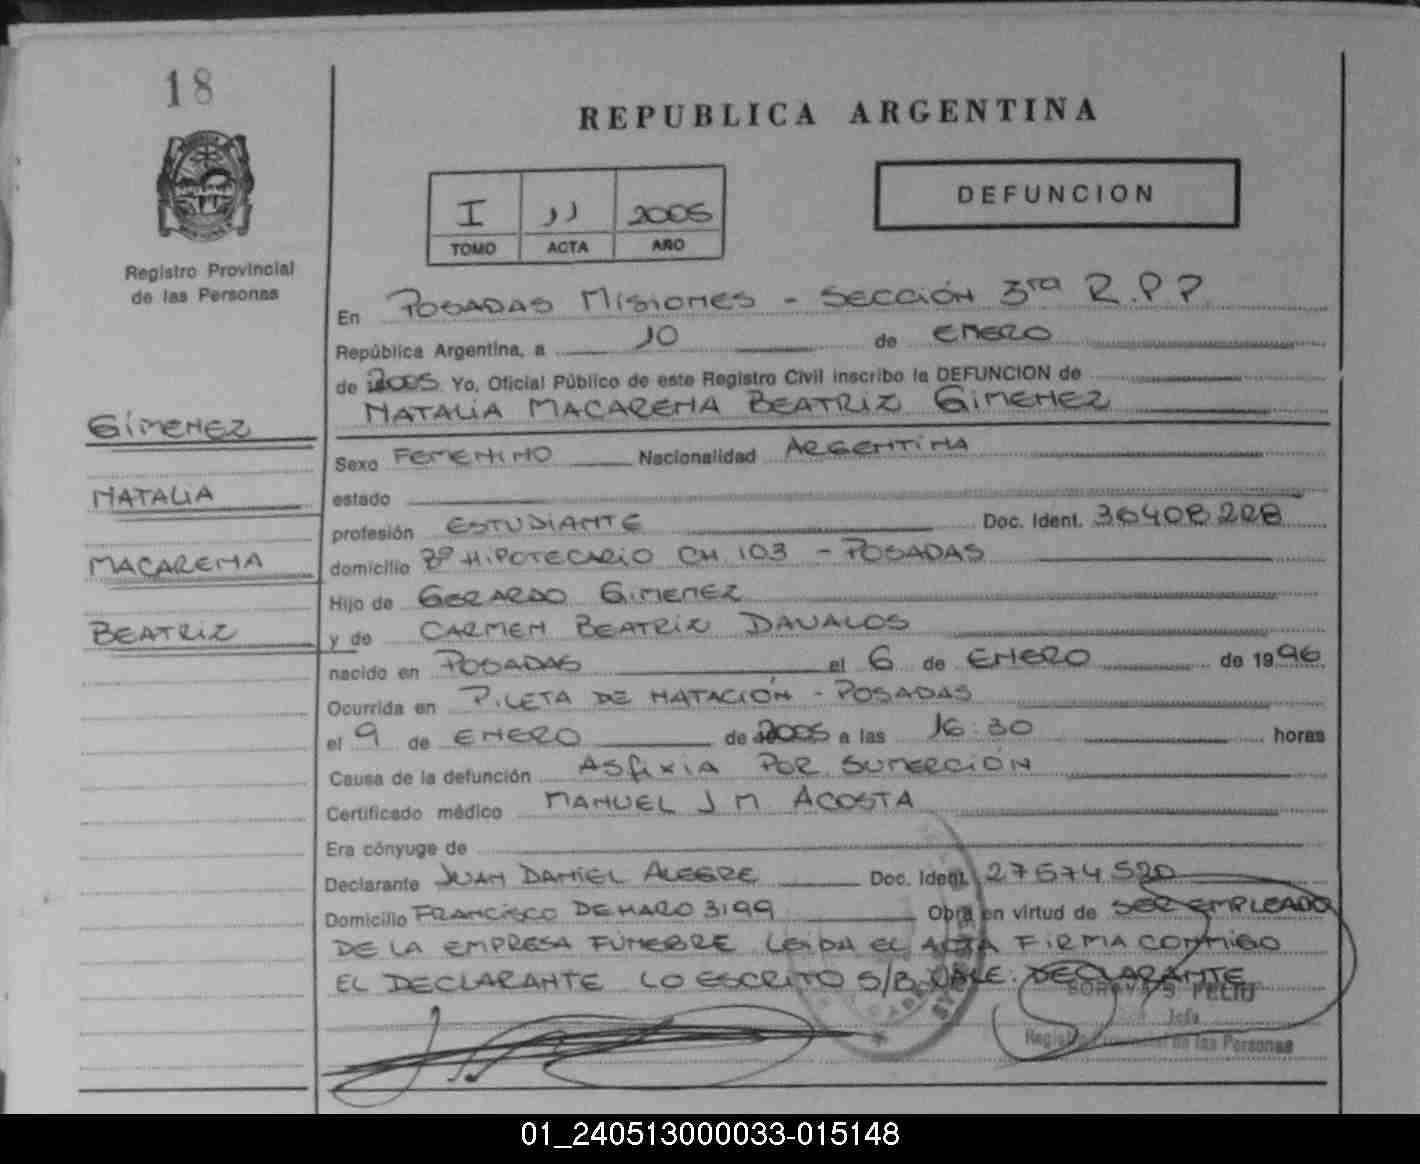 18
REPUBLICA ARGENTINA
DEFUNCION
I 11 2005
TOMO ACTA AÑO
Registro Provincial
de las Personas
En POSADAS MISIONES - SECCIÓN 3ra R.P.P.
República Argentina, a 10 de ENERO
de 2005 Yo, Oficial Público de este Registro Civil inscribo la DEFUNCION de
NATALIA MACARENA BEATRIZ GIMENEZ
GIMENEZ
NATALIA
MACARENA
BEATRIZ
Sexo FEMENINO Nacionalidad ARGENTINA
estado
profesión ESTUDIANTE Doc. Ident. 36408228
domicilio Bº HIPOTECARIO CH. 103 - POSADAS
Hijo de GERARDO GIMENEZ
y de CARMEN BEATRIZ DAVALOS
nacido en POSADAS el 6 de ENERO de 1996
Ocurrida en PILETA DE NATACIÓN - POSADAS
el 9 de ENERO de 2005 a las 16:30 horas
Causa de la defunción ASFIXIA POR SUMERCIÓN
Certificado médico MANUEL J M ACOSTA
Era cónyuge de
Declarante JUAN DANIEL ALEGRE Doc. Ident. 27574520
Domicilio FRANCISCO DE HARO 3199 Obra en virtud de SER EMPLEADO
DE LA EMPRESA FUNEBRE LEIDA EL ACTA FIRMA CONMIGO
EL DECLARANTE LO ESCRITO S/B. VALE: DECLARANTE
Jefa
Registro Provincial de las Personas
01_240513000033-015148